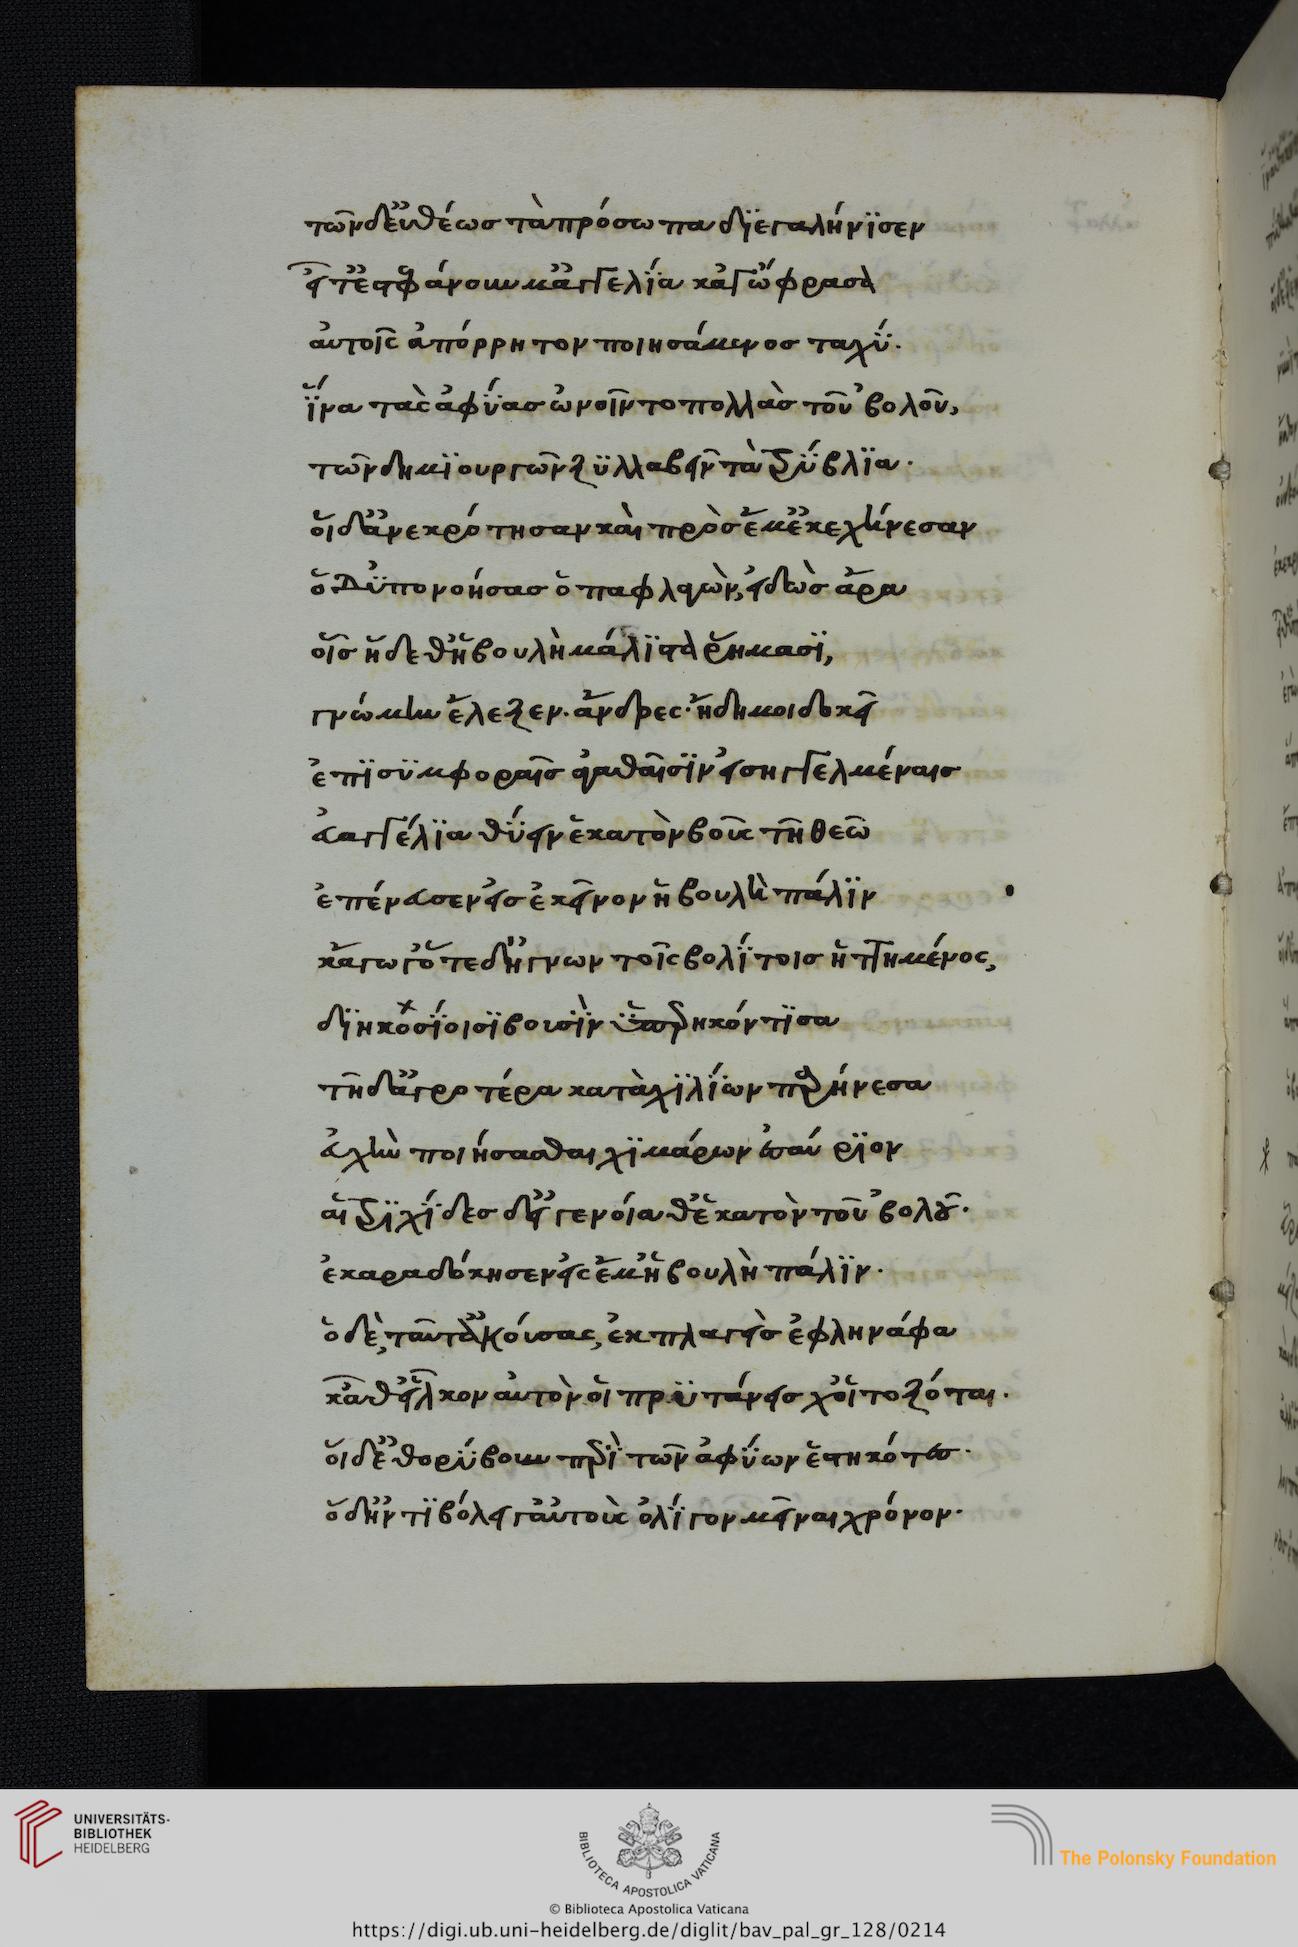 τῶν δ' εὐθέως τὰ πρόσωπα διεγαλήνισεν
εἶτ' ἐστεφάνουν μ' εὐαγγέλια κἀγὼ 'φρασα
αὐτοῖς ἀπόρρητον ποιησάμενος ταχύ.
ἵνα τὰς ἀφύας ὠνοῖντο πολλὰς τοὐβολοῦ,
τῶν δημιουργῶν ξυλλαβεῖν τὰ τρύβλια.
οἱ δ' ἀνεκρότησαν καὶ πρὸς ἔμ' ἐκεχήνεσαν
ὁ δ' ὑπονοήσας ὁ παφλαγὼν, εἰδὼς ἄρα
οἷς ἥδεθ' ἡ βουλὴ μάλιστα ῥήμασι,
γνώμην ἔλεξεν. ἄνδρες. ἤδη μοι δοκεῖ
ἐπὶ συμφοραῖς ἀγαθαῖσιν εἰσηγγελμέναις
εὐαγγέλια θύειν ἑκατὸν βοῦς τῇ θεῷ
ἐπένευσεν εἰς ἐκεῖνον ἡ βουλὴ πάλιν
κἄγωγ' ὅτε δὴ 'γνων τοῖς βολίτοις ἡττημένος,
διηκοσίοισι βουσὶν ὑπερηκόντισα
τῇ δ' ἀγροτέρα κατὰ χιλίων παρήνεσα
εὐχὴν ποιήσασθαι χιμάρων εἰσαύριον
αἱ τριχίδες δ' εἰ γενοίαθ' ἑκατὸν τοὐβολοῦ.
ἐκαραδόκησεν εἰς ἔμ' ἡ βουλὴ πάλιν.
ὁ δὲ, ταῦτ' ἀκούσας, ἐκπλαγεὶς ἐφληνάφα
κᾆθ' εἷλκον αὐτὸν οἱ πρυτάνεις χ' οἱ τοξόται.
οἱ δ' ἐθορύβουν περὶ τῶν ἀφύων ἑστηκότες.
ὁ δ' ἠντιβόλει γ' αὐτοὺς ὀλίγον μεῖναι χρόνον.
UNIVERSITÄTS-
BIBLIOTHEK
HEIDELBERG
BIBLIOTECA APOSTOLICA VATICANA
The Polonsky Foundation
© Biblioteca Apostolica Vaticana
https://digi.ub.uni-heidelberg.de/diglit/bav_pal_gr_128/0214